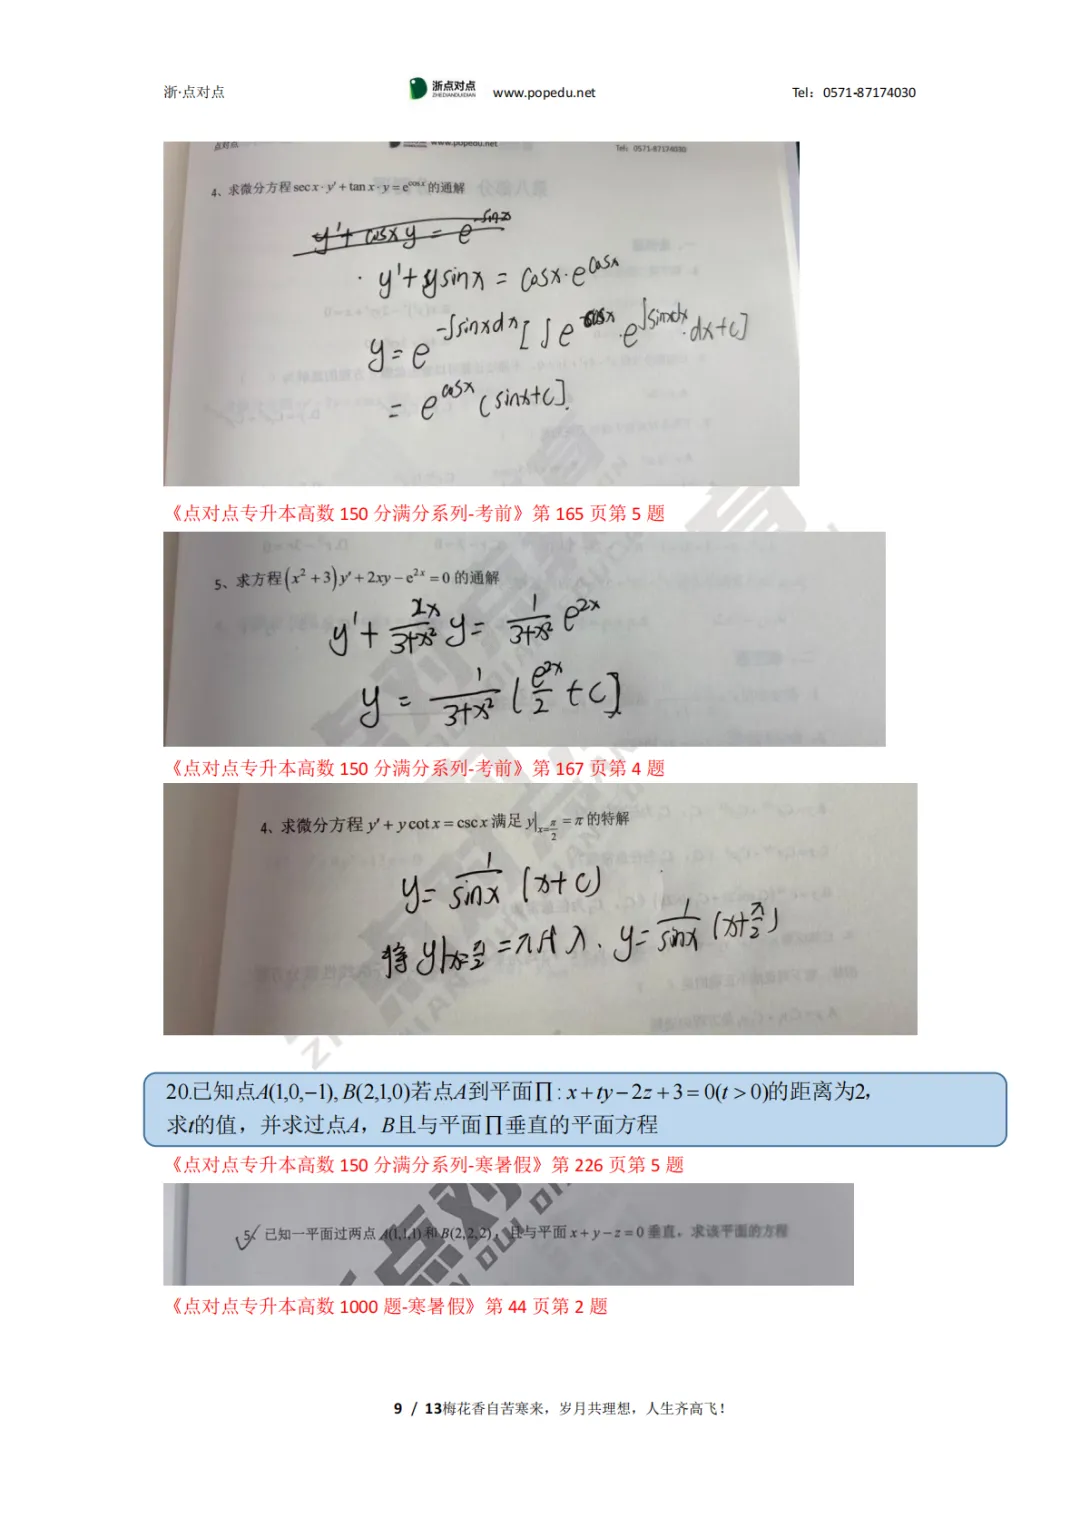 浙·点对点
浙点对点
ZHEDIANDUIDIAN
www.popedu.net
Tel：0571-87174030
点对点
www.popedu.net
Tel：0571-87174030
4、求微分方程 sec x · y′ + tan x · y = e^{cos x} 的通解
y′ + cosx y = e^{-sinx}
y′ + y sinx = cosx · e^{cosx}
y = e^{-∫sinxdx} [ ∫ e^{cosx} · e^{∫sinxdx} · dx + C ]
= e^{cosx} (sinx + C ] .
《点对点专升本高数 150 分满分系列-考前》第 165 页第 5 题
5、求方程 (x² + 3) y′ + 2xy − e^{2x} = 0 的通解
y′ + 2x/(3+x²) y = 1/(3+x²) e^{2x}
y = 1/(3+x²) ( e^{2x}/2 + C ]
《点对点专升本高数 150 分满分系列-考前》第 167 页第 4 题
4、求微分方程 y′ + y cot x = csc x 满足 y|_{x=π/2} = π 的特解
y = 1/sinx (x + C)
将 y|x=π/2 = π代入. y = 1/sinx (x + π/2)
20.已知点A(1,0,−1), B(2,1,0)若点A到平面∏ : x + ty − 2z + 3 = 0(t > 0)的距离为2,
求t的值，并求过点A，B且与平面∏垂直的平面方程
《点对点专升本高数 150 分满分系列-寒暑假》第 226 页第 5 题
5、已知一平面过两点 A(1,1,1) 和 B(2,2,2)，且与平面 x + y − z = 0 垂直，求该平面的方程
《点对点专升本高数 1000 题-寒暑假》第 44 页第 2 题
9 / 13梅花香自苦寒来，岁月共理想，人生齐高飞！